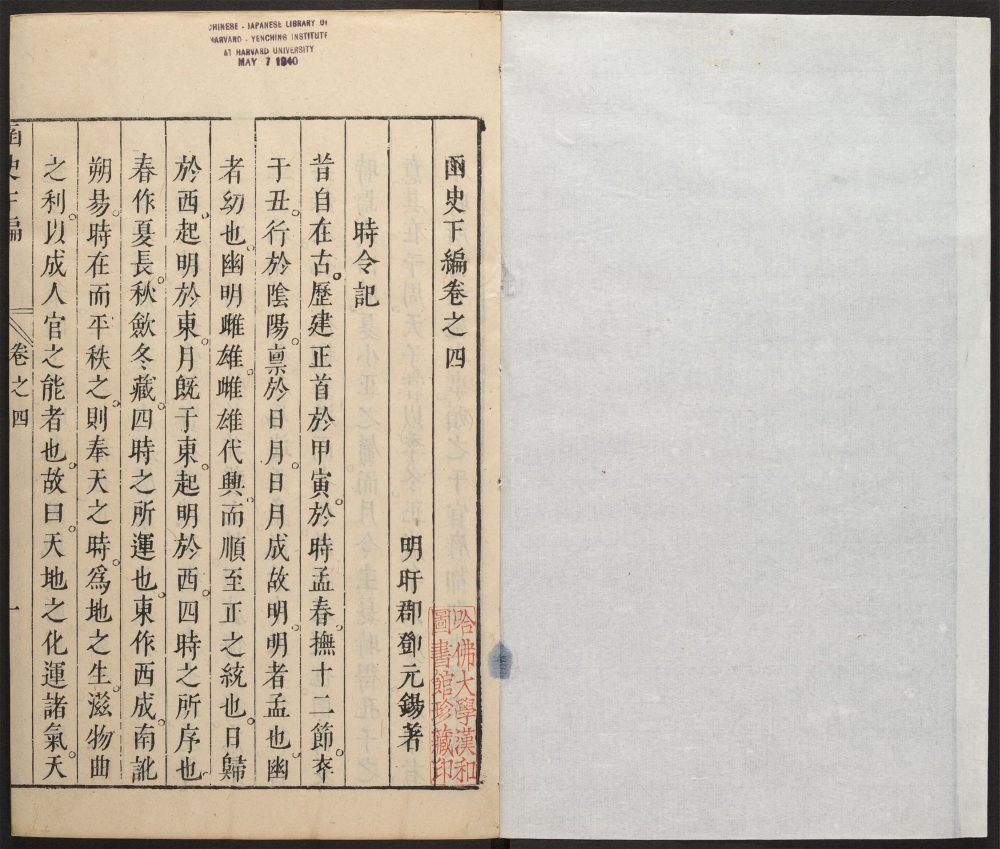 CHINESE - JAPANESE LIBRARY OF
HARVARD - YENCHING INSTITUTE
AT HARVARD UNIVERSITY
MAY 7 1940
函史下編卷之四
明盱郡鄧元錫著
哈佛大學漢和
圖書館珍藏印
時令記
昔自在古。歷建正首於甲寅。於時孟春。撫十二節。卒
于丑。行於陰陽。稟於日月。日月成故明。明者孟也。幽
者幼也。幽明雌雄。雌雄代興。而順至正之統也。日歸
於西。起明於東。月旣于東。起明於西。四時之所序也
春作夏長。秋歛冬藏。四時之所運也。東作西成。南訛
朔昜。時在而平秩之。則奉天之時。爲地之生。滋物曲
之利。以成人官之能者也。故曰。天地之化運諸氣。天
函史下編
卷之四
一